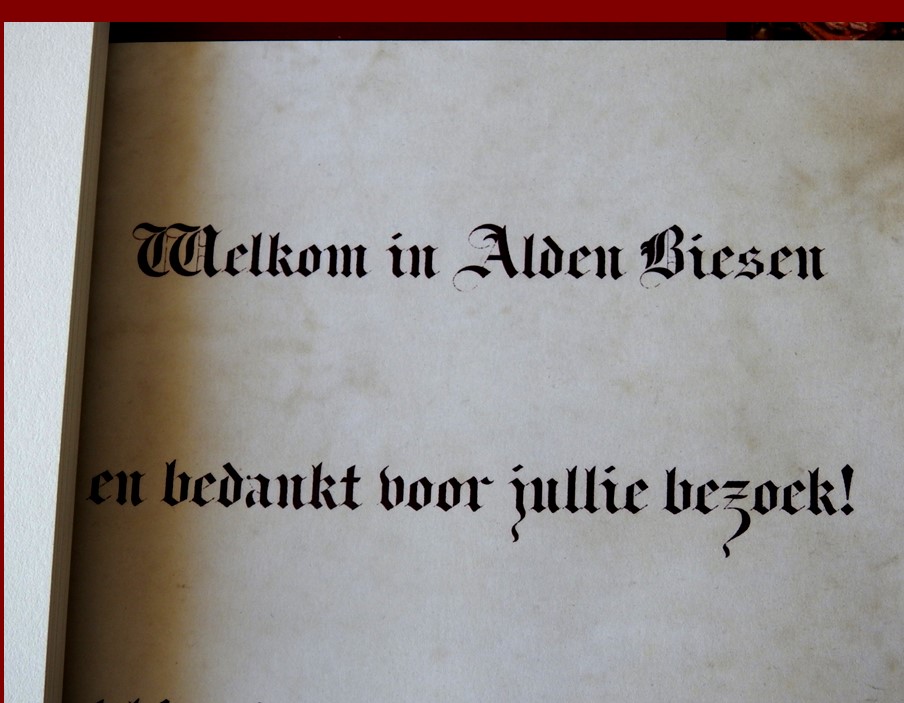 Welkom in Alden Biesen
en bedankt voor jullie bezoek!